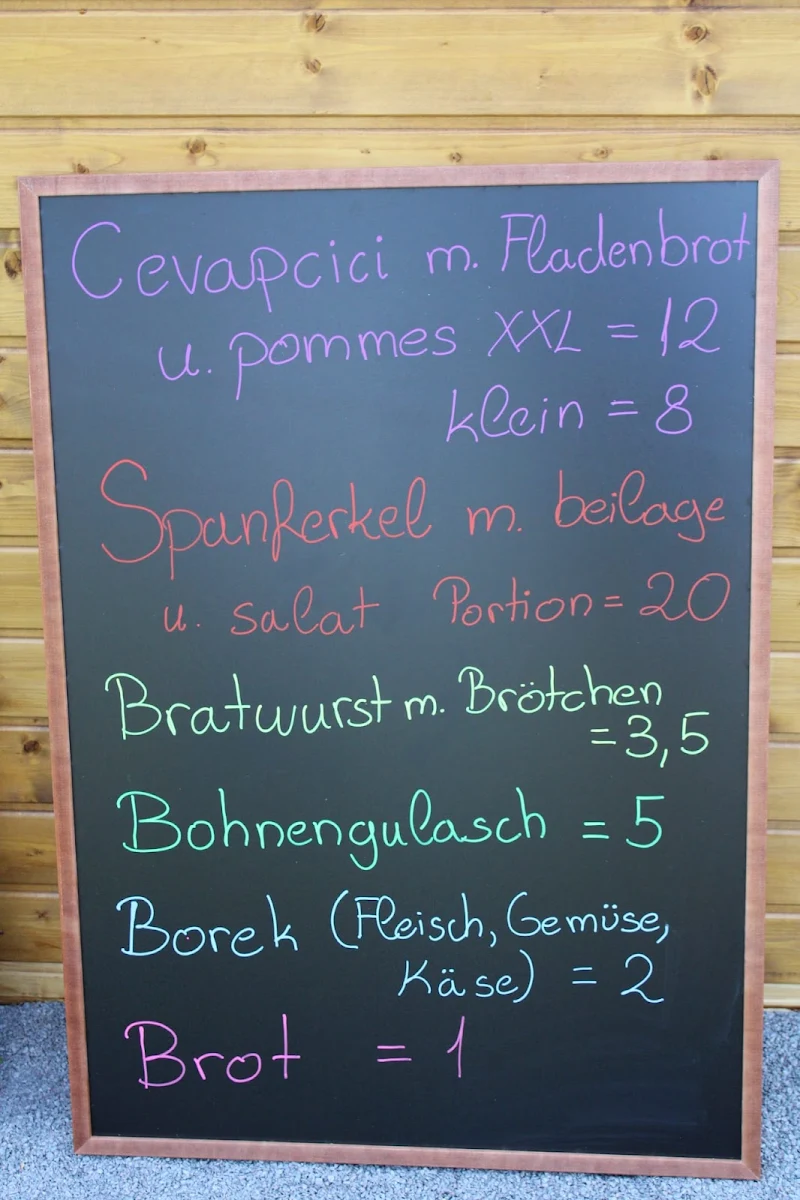 Cevapcici m. Fladenbrot
u. pommes XXL = 12
klein = 8
Spanferkel m. beilage
u. salat Portion = 20
Bratwurst m. Brötchen
= 3,5
Bohnengulasch = 5
Borek (Fleisch, Gemüse,
Käse) = 2
Brot = 1